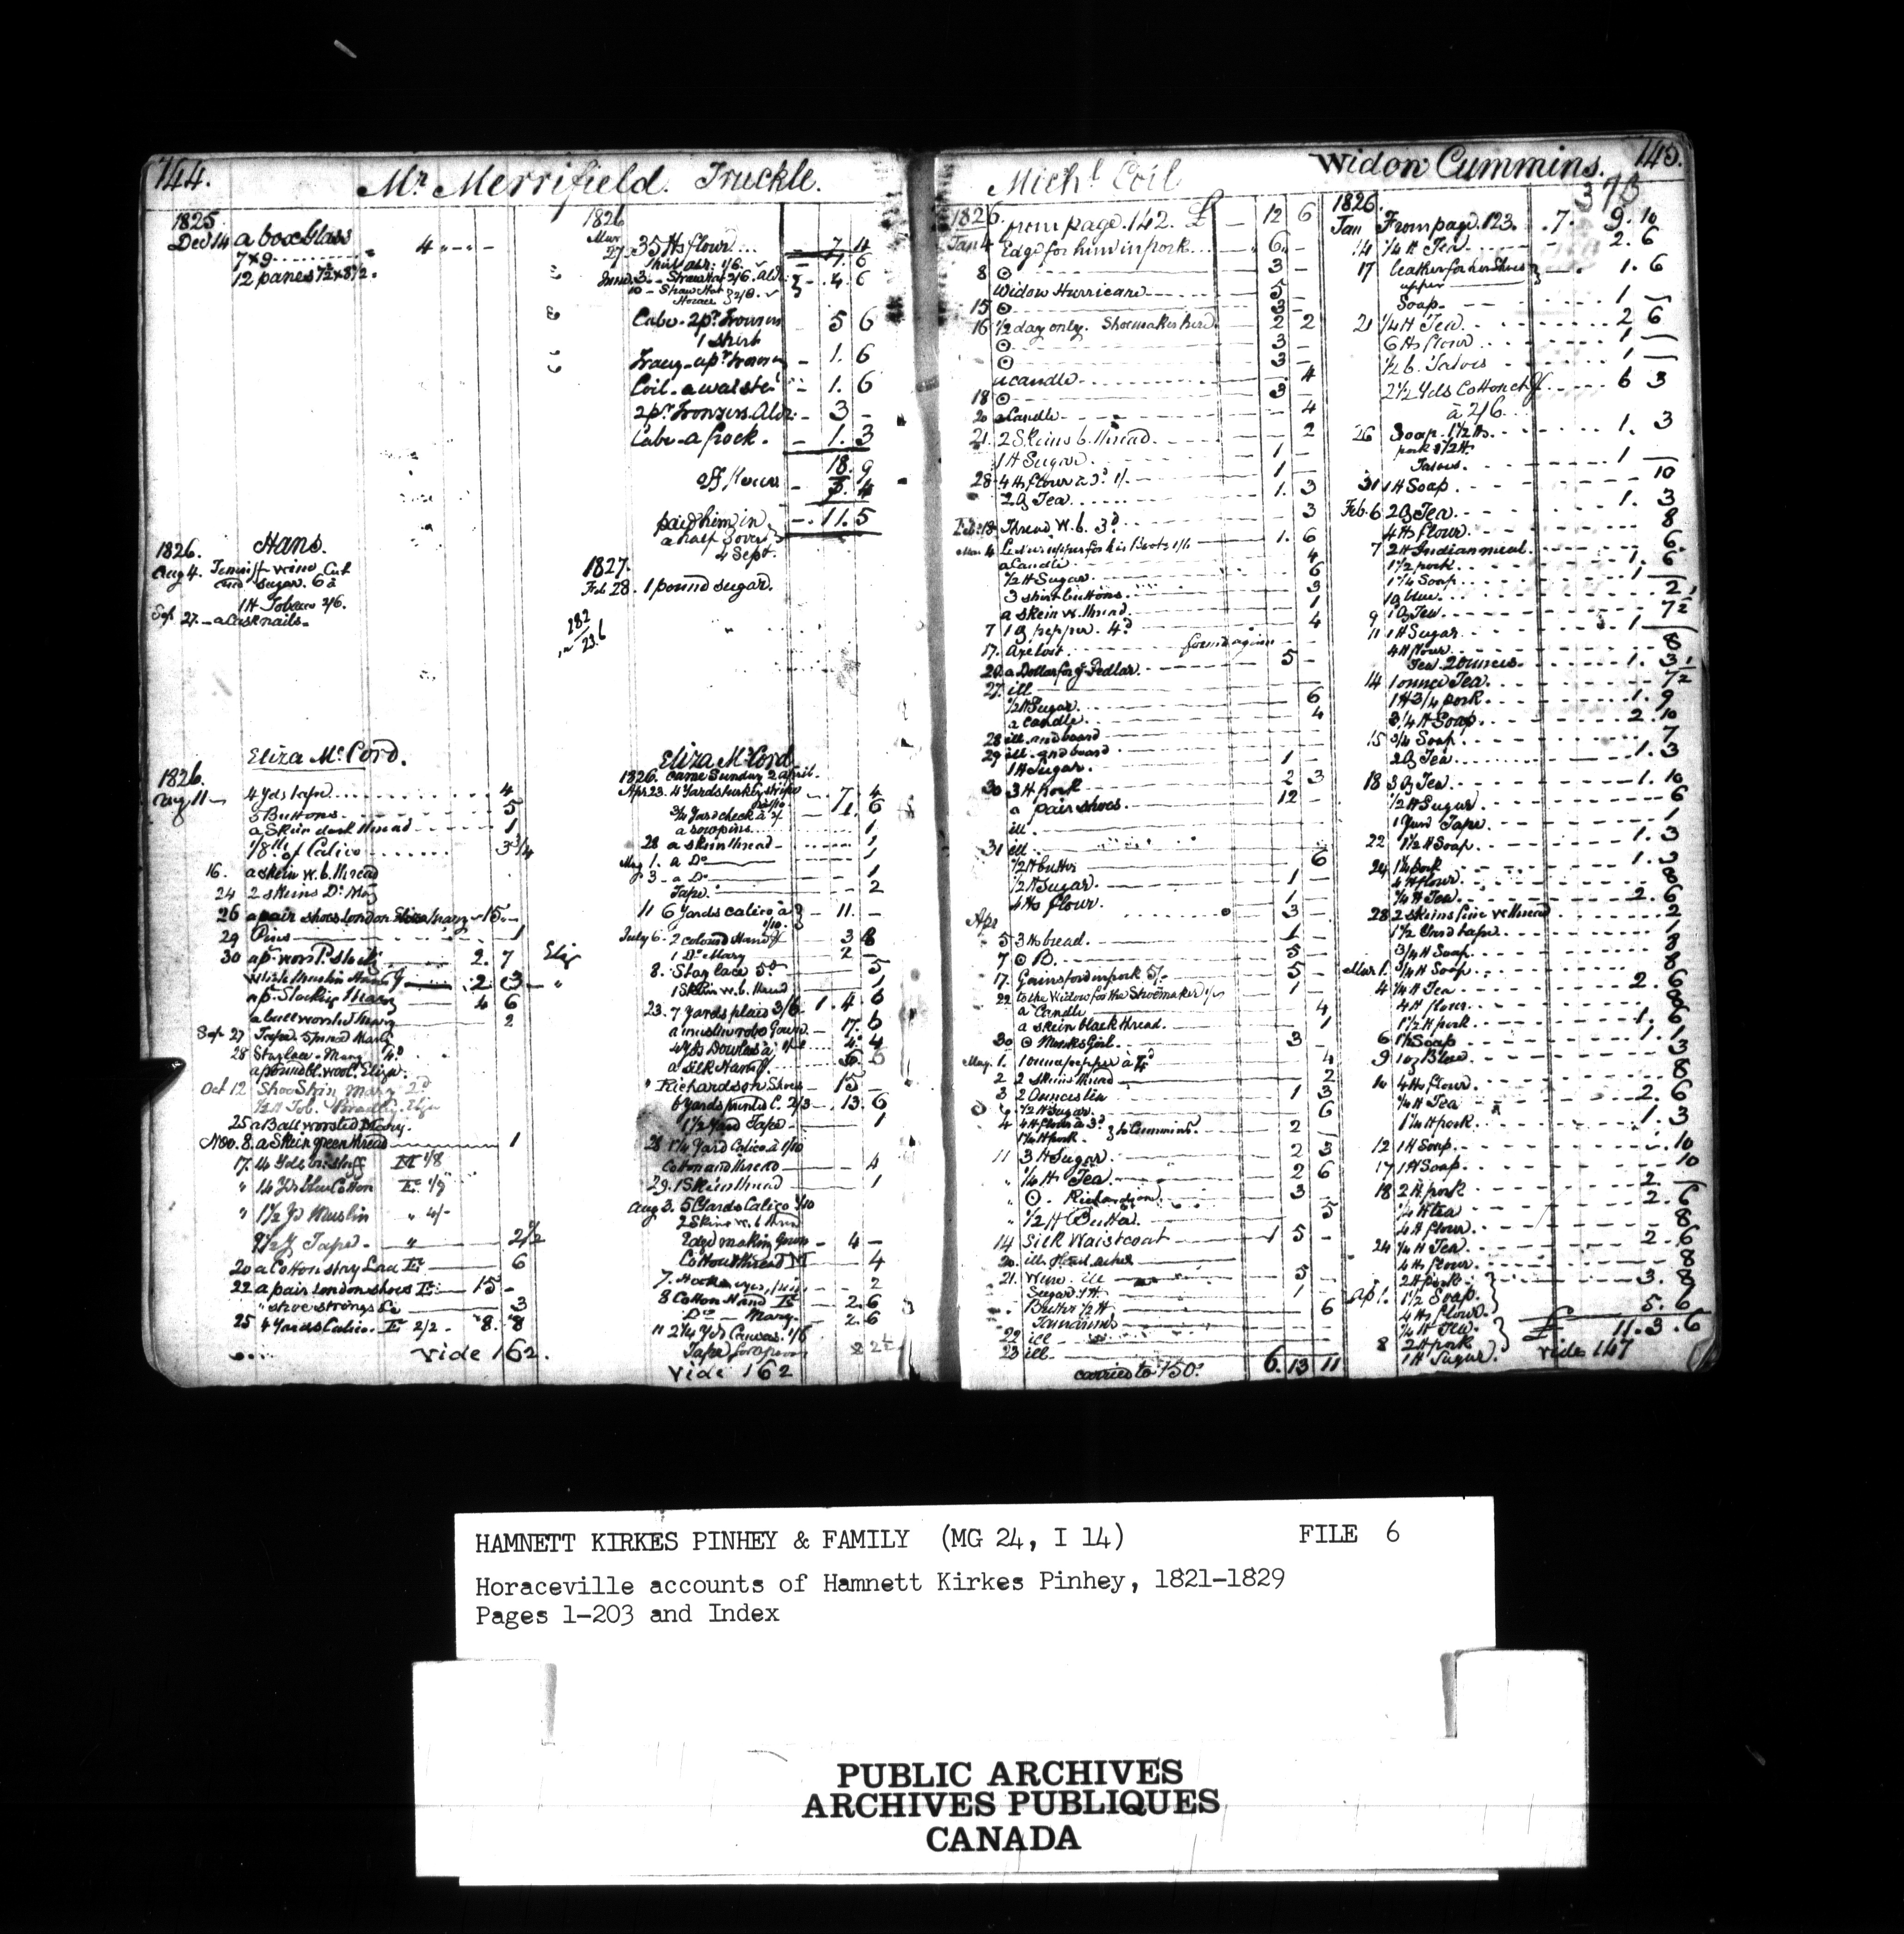 144.
Mr Merrifield. Truckle.
1825
Dec 14 a box Glass
7x9 4 " - " -
12 panes 7½x8½.
1826
27. 35 ℔s flour... - 7 4
Cabe. 2 pr Trousers 5 6
1 shirt
Tracy - a pr Trousers - 1. 6
Coil. a waistct - 1. 6
2 pr Trouzers. Aldr. - 3 -
Cabe - a frock. - 1. 3
18. 9
off flour - 7. 4
paid him in - . 11. 5
a half Sover
4 Sept.
1826. Hans.
Aug 4.
sugar. 6 d
1 ℔ Tobacco 2/6.
Sep 27. - a Cask nails -
1827.
Feb 28. 1 pound sugar.
282
23.6
Eliza McCord.
1826.
Aug 11 - 4 Yds tape 4
3 Buttons 5
a Skein dark thread 1
1/8th of Calico 3 3/4
16. a skein w. b. thread
24 2 skeins Do May
26 a pair shoes London Mary - 15 -
29 Pins 1
30 a pr worsd. stocks 2. 7
a pr. Stockings Mary 4 6
a ball worsted Mary 2
Sep 27 Tape Mary
28 Stay lace - Mary 4d
a pound bl. wool. Eliza.
Oct 12 Shoe Skin Mary 2d
½ ℔ Tob. Bradley. Eliza
25 a Ball worsted Mary.
Nov. 8. a Skein green thread 1
17. 14 Yds Stuff M 1/8
" 14 Yds blue Cotton E 1/9
" 1½ Yd Muslin " 4/-
9½ Y Tape. " 2½
20 a Cotton stay Lace E 6
22 a pair London shoes E 15 -
" shoe strings 3
25 4 Yards Calico. E 2/2 - 8. 8
vide 162.
Eliza McCord
1826. came Sunday 2 April.
Apr 23. 4 Yards turkey stripe 7 4
¾ Yard check à 2/ 1. 6
a row pins 1
28 a skein thread 1
May 1. a Do 1
3 - a Do 1
Tape. 2
11 6 Yards calico à 1/10 - 11. -
July 6 - 2 colourd Handf 3 8
1 Do Mary 2 -
8. Stay lace 5d 5
1 Skein w. b. thread 1
23. 7 Yards plaid 3/6 1. 4 6
a muslin robe Gown 17. 6
4 Yds Dowlas à 4. 4
a Silk Handf.
" Richardson Shoes 15 -
6 Yards printed C. 2/3 - 13. 6
1½ Yard Tape 1
28 1¼ Yard Calico à 1/10
Cotton and thread 4
29. 1 Skein thread 1
Aug 3. 5 Yards Calico 1/10
2 Skeins w. b. thread
making Gown - 4 -
Cotton thread M 4
7. Hooks eyes, 2
8 Cotton Hand E 2. 6
Do Mary. 2. 6
11 2¼ Yds Canvas. 1/6
Tape for apron
vide 162
Michl Coil
1826. from page 142. £ - 12 6
Jan 4 Edge for him in pork 6. -
8 ⊙ 3 -
Widow Hurricane 5 -
15 ⊙ 3 -
16 ½ day only. Shoemaker hired 2 2
⊙ 3 -
⊙ 3 -
a candle 4
18 ⊙ 3 -
20 a Candle 4
21. 2 Skeins b. thread. 2
1 ℔ Sugar. 1 -
28 4 ℔s flour à 3d 1/. 1 -
2 oz Tea 1. 3
Feb. 18 Thread w. b. 3d 3
Mar 4 upper for his Boots 1/6 1. 6
a Candle 4
½ ℔ Sugar 6
3 shirt buttons. 3
a skein w. thread. 1
7 1 oz pepper. 4d 4
17. Axe lost found again
20. a Dollar for ye Pedlar. 5 -
27. ill
½ ℔ Sugar. 6
a Candle 4
28 ill. and board
29 ill. and board
1 ℔ Sugar. 1 -
30 3 ℔ pork 2 3
a pair shoes. 12 -
ill.
31 ill
½ ℔ butter 6
½ ℔ Sugar. 1 -
4 ℔s flour. 1 -
Apr 3 -
5 3 ℔s bread. 1 -
7 ⊙ B. 5 -
17. Gainsford in pork 5/. 5 -
22 to the Widow for the Shoemaker 1/ 1 -
a Candle 4
a skein black thread. 1
30 ⊙ Monks Girl. 3 -
May. 1. 1 ounce pepper à 4d 4
2 2 skeins thread 2
3 2 Ounces tea 1 3
½ ℔ Sugar 6
4 4 ℔ flour à 3d to Cummins 2
1¼ ℔ pork
11 3 ℔ Sugar. 2 3
" ¼ ℔ Tea 2 6
" ⊙. Richardson. 3 -
" ½ ℔ Butter. 5
14 Silk Waistcoat 1 5 -
20. ill head aches
21. Wine. ill 5 -
Sugar 1 ℔ 1 -
Butter ½ ℔ 6
Tamarinds
22 ill
23 ill.
carried to 150. 6. 13 11
Widow Cummins. 145.
1826.
Jan From page 123. . 7. 9. 10
14 ¼ ℔ Tea - 2. 6
17 leather for her Shoes 1. 6
upper
Soap. 1 -
21 ¼ ℔ Tea. 2 6
6 ℔s flour 1 -
½ b. Tatoes 1 -
2½ Yds Cotton ch 6 3
à 2/6
26 Soap. 1½ ℔s. 1. 3
pork 1½ ℔.
Tatoes. 1 -
31 1 ℔ Soap. 10
Feb. 6 2 oz Tea. 1. 3
4 ℔s flour. 8
7 2 ℔ Indian meal. 6.
1½ pork 1. 6
1¼ Soap. 1 -
1 oz blue. 2
9 1 oz Tea. 7½
11 1 ℔ Sugar 1 -
4 ℔ flour 8
Tea 2 ounces. 1. 3
14 1 ounce Tea. 7½
1 ℔ 3/4 pork 1. 9
3¼ ℔ Soap. 2. 10
15 ¾ Soap. 7
2 oz Tea. 1. 3
18 3 oz Tea. 1. 10
½ ℔ Sugar 6
1 Yard Tape. 1
22 1½ ℔ Soap. 1. 3
24 1¼ pork 1. 3
4 ℔ flour. 8
¼ ℔ Tea. 2. 6
28 2 skeins fine w. thread 2
1½ Yard tape. 1
¾ ℔ Soap. 8
Mar 1. ¾ ℔ Soap 8
4 ¼ ℔ Tea 2. 6
4 ℔ flour. 8
1½ ℔ pork 1. 6
6 1 ℔ Soap 1. 1
9 1 oz Blue 3
10 4 ℔s flour. 8
¼ ℔ Tea 2. 6
1¼ ℔ pork. 1. 3
12 1 ℔ Soap. 10
17 1 ℔ Soap. 10
18 2 ℔ pork 2 -
¼ ℔ tea 2. 6
4 ℔ flour. 8
24 ¼ ℔ Tea. 2. 6
4 ℔ flour. 8
2 ℔ pork 3. 8
Apl. 1½ Soap.
4 ℔s flour.
¼ ℔ Tea. 5. 6
8 2 ℔ pork £ 11. 3. 6
1 ℔ Sugar. vide 147
HAMNETT KIRKES PINHEY & FAMILY (MG 24, I 14) FILE 6
Horaceville accounts of Hamnett Kirkes Pinhey, 1821-1829
Pages 1-203 and Index
PUBLIC ARCHIVES
ARCHIVES PUBLIQUES
CANADA